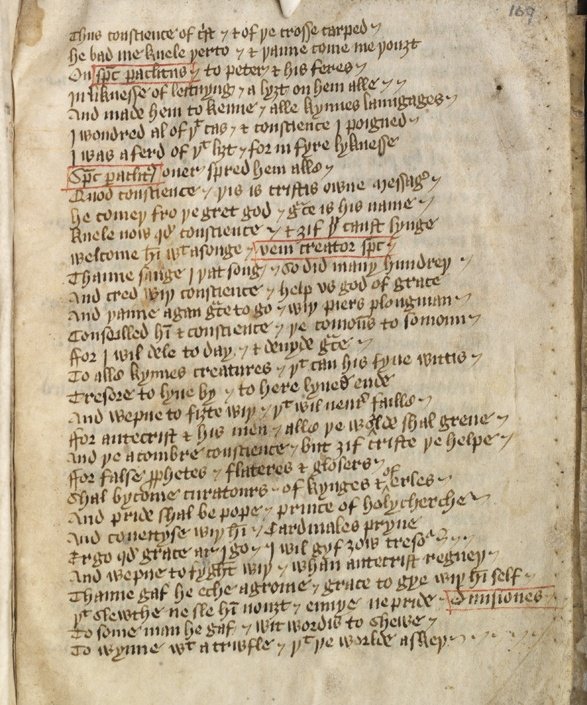 169
Thus conscience of cͥst ⁊ & of þe crosse carped ⁊
He bad me knele þerto ⁊ & þanne come me þouȝt
On spͨ paclitus ⁊ to peter & his feres ⁊
In liknesse of leitnyng ⁊ a lyȝt on hem alle ⁊ ⁊
And made hem to kenne ⁊ alle kynnes langages ⁊
I wondred al of þͭ cas ⁊ & conscience I poigned ⁊
I was aferd of þͭ lyȝt ⁊ for in fyre lyknesse
Spͨ paclitꝰ ouer spred hem alle ⁊
Quod conscience ⁊ þis is cristis owne messagꝰ ⁊
He comeþ fro þe gret god ⁊ gͣce is his name ⁊
Knele now qd̛ conscience ⁊ & ȝif þͧ canst synge
welcome hī wͭ a songe ⁊ veni creator spͨ ⁊
Thanne sange I þat song ⁊ so did many hundreþ ⁊
And cred wiþ conscience ⁊ help vs god of grace
And þanne agan gͣce to go ⁊ wiþ piers plougman ⁊
Conseilled hī & conscience ⁊ þe comoūs to somoun ⁊
ffor I wil dele to day ⁊ & deuyde gͣce ⁊
To alle kynnes creatures ⁊ þͭ can his fyue wittis ⁊
Tresore to lyue by ⁊ to here lyues ende
And wepne to fiȝte wiþ ⁊ þͭ wil neuꝰ faille ⁊
ffor antecrist & his men ⁊ alle þe worlde shal greue ⁊
And þe acombre conscience ⁊ but ȝif criste þe helpe ⁊
ffor false ꝓphetes ⁊ flateres & glosers ⁊
Shal bycome curatours ⁊ of kynges & of erles ⁊
And pride shal be pope ⁊ prince of holycherche ⁊
And coueityse wiþ hī ⁊ Cardinales pryue
Ergo qd̛ grace ar I go ⁊ I wil gyf ȝow tresoꝰ ⁊
And wepne to fyght wiþ ⁊ whan antecrist regneþ ⁊
Thanne gaf he eche a grome ⁊ grace to gye wiþ hī self ⁊
þͭ slewthe ne sle hī nouȝt ⁊ enuye ne pride ⁊ Diuisiones ⁊
To some man he gaf ⁊ wit wordis to shewe ⁊
To wynne wͭ a triwfle ⁊ þͭ þe worlde askeþ ⁊